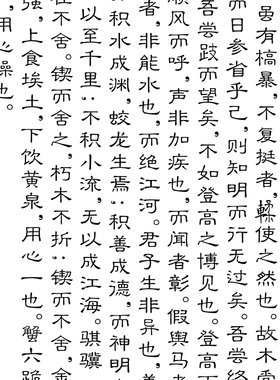 虽有槁暴,不复挺者,𫐓使之然也。故木受
而日参省乎己,则知明而行无过矣。吾尝终
吾尝跂而望矣,不如登高之博见也。登高而
顺风而呼,声非加疾也,而闻者彰。假舆马者
者,非能水也,而绝江河。君子生非异也,善
;积水成渊,蛟龙生焉;积善成德,而神明
以至千里;不积小流,无以成江海。骐骥
在不舍。锲而舍之,朽木不折;锲而不舍,金
强,上食埃土,下饮黄泉,用心一也。蟹六跪
用心躁也。